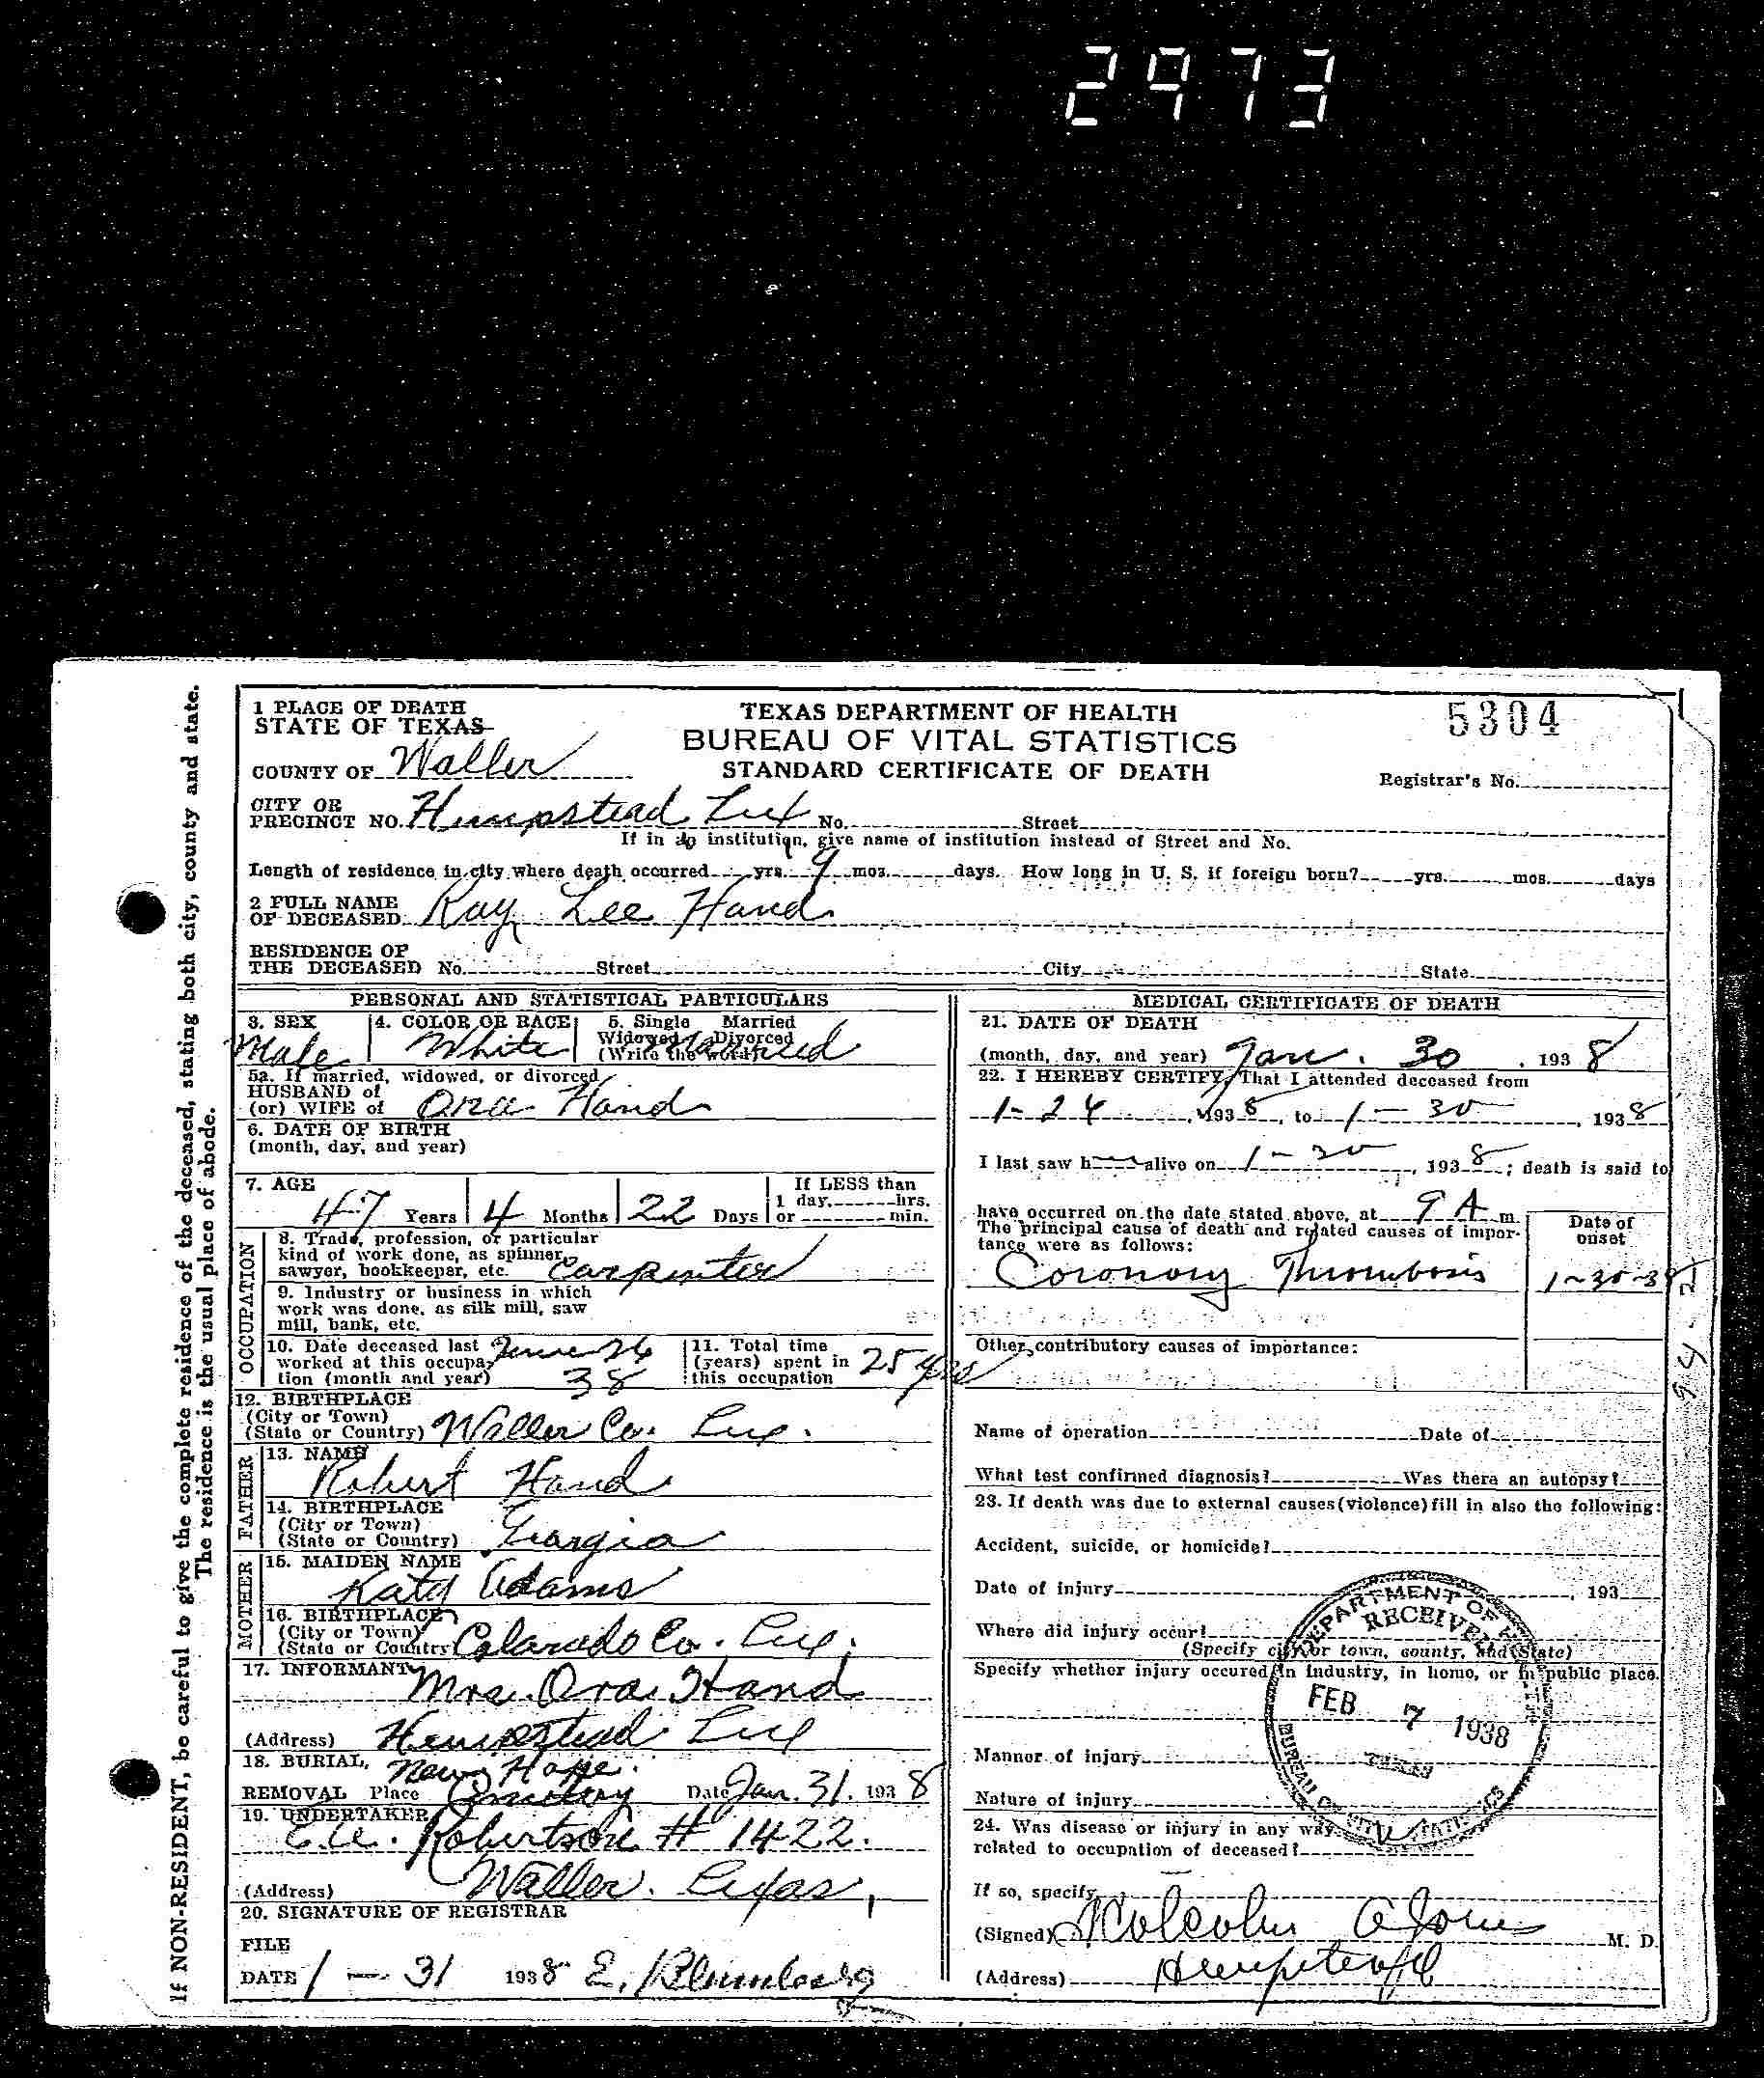 2973
If NON-RESIDENT, be careful to give the complete residence of the deceased, stating both city, county and state.
The residence is the usual place of abode.
1 PLACE OF DEATH
STATE OF TEXAS
COUNTY OF Waller
TEXAS DEPARTMENT OF HEALTH
BUREAU OF VITAL STATISTICS
STANDARD CERTIFICATE OF DEATH
5304
Registrar's No.
CITY OR
PRECINCT NO. Hempstead Tex No. Street
If in an institution, give name of institution instead of Street and No.
Length of residence in city where death occurred yrs. 9 mos. days. How long in U. S. if foreign born? yrs. mos. days
2 FULL NAME
OF DECEASED Ray Lee Hand
RESIDENCE OF
THE DECEASED No. Street City State
PERSONAL AND STATISTICAL PARTICULARS
3. SEX 4. COLOR OR RACE 5. Single Married
Widowed Divorced
(Write the word)
Male White Married
5a. If married, widowed, or divorced
HUSBAND of
(or) WIFE of Ora Hand
6. DATE OF BIRTH
(month, day, and year)
7. AGE If LESS than
1 day, hrs.
47 Years 4 Months 22 Days or min.
OCCUPATION
8. Trade, profession, or particular
kind of work done, as spinner,
sawyer, bookkeeper, etc. Carpenter
9. Industry or business in which
work was done, as silk mill, saw
mill, bank, etc.
10. Date deceased last
worked at this occupa-
tion (month and year) 38
11. Total time
(years) spent in
this occupation 25 yrs
12. BIRTHPLACE
(City or Town)
(State or Country) Waller Co. Tex.
FATHER
13. NAME
Robert Hand
14. BIRTHPLACE
(City or Town)
(State or Country) Georgia
MOTHER
15. MAIDEN NAME
Katy Adams
16. BIRTHPLACE
(City or Town)
(State or Country) Colarado Co. Tex.
17. INFORMANT
Mrs. Ora Hand
(Address) Hempstead Tex
18. BURIAL, New Hope
REMOVAL Place Cemetery Date Jan. 31. 1938
19. UNDERTAKER
Robertson # 1422.
(Address) Waller. Texas,
20. SIGNATURE OF REGISTRAR
FILE
DATE 1 - 31 1938 E. Blumberg
MEDICAL CERTIFICATE OF DEATH
21. DATE OF DEATH
(month, day, and year) Jan. 30, 1938
22. I HEREBY CERTIFY, That I attended deceased from
1-24, 1938, to 1-30, 1938
I last saw h alive on 1-30, 1938; death is said to
have occurred on the date stated above, at 9 A m.
The principal cause of death and related causes of impor-
tance were as follows:
Date of
onset
Coronary Thrombosis 1-30-38
Other contributory causes of importance:
Name of operation Date of
What test confirmed diagnosis? Was there an autopsy?
23. If death was due to external causes (violence) fill in also the following:
Accident, suicide, or homicide?
Date of injury , 193
Where did injury occur?
(Specify city or town, county, and State)
Specify whether injury occured in industry, in home, or in public place.
Manner of injury
Nature of injury
24. Was disease or injury in any way
related to occupation of deceased?
If so, specify
(Signed) M. D.
(Address) Hempstead
DEPARTMENT OF
RECEIVED
FEB 7 1938
BUREAU OF
94